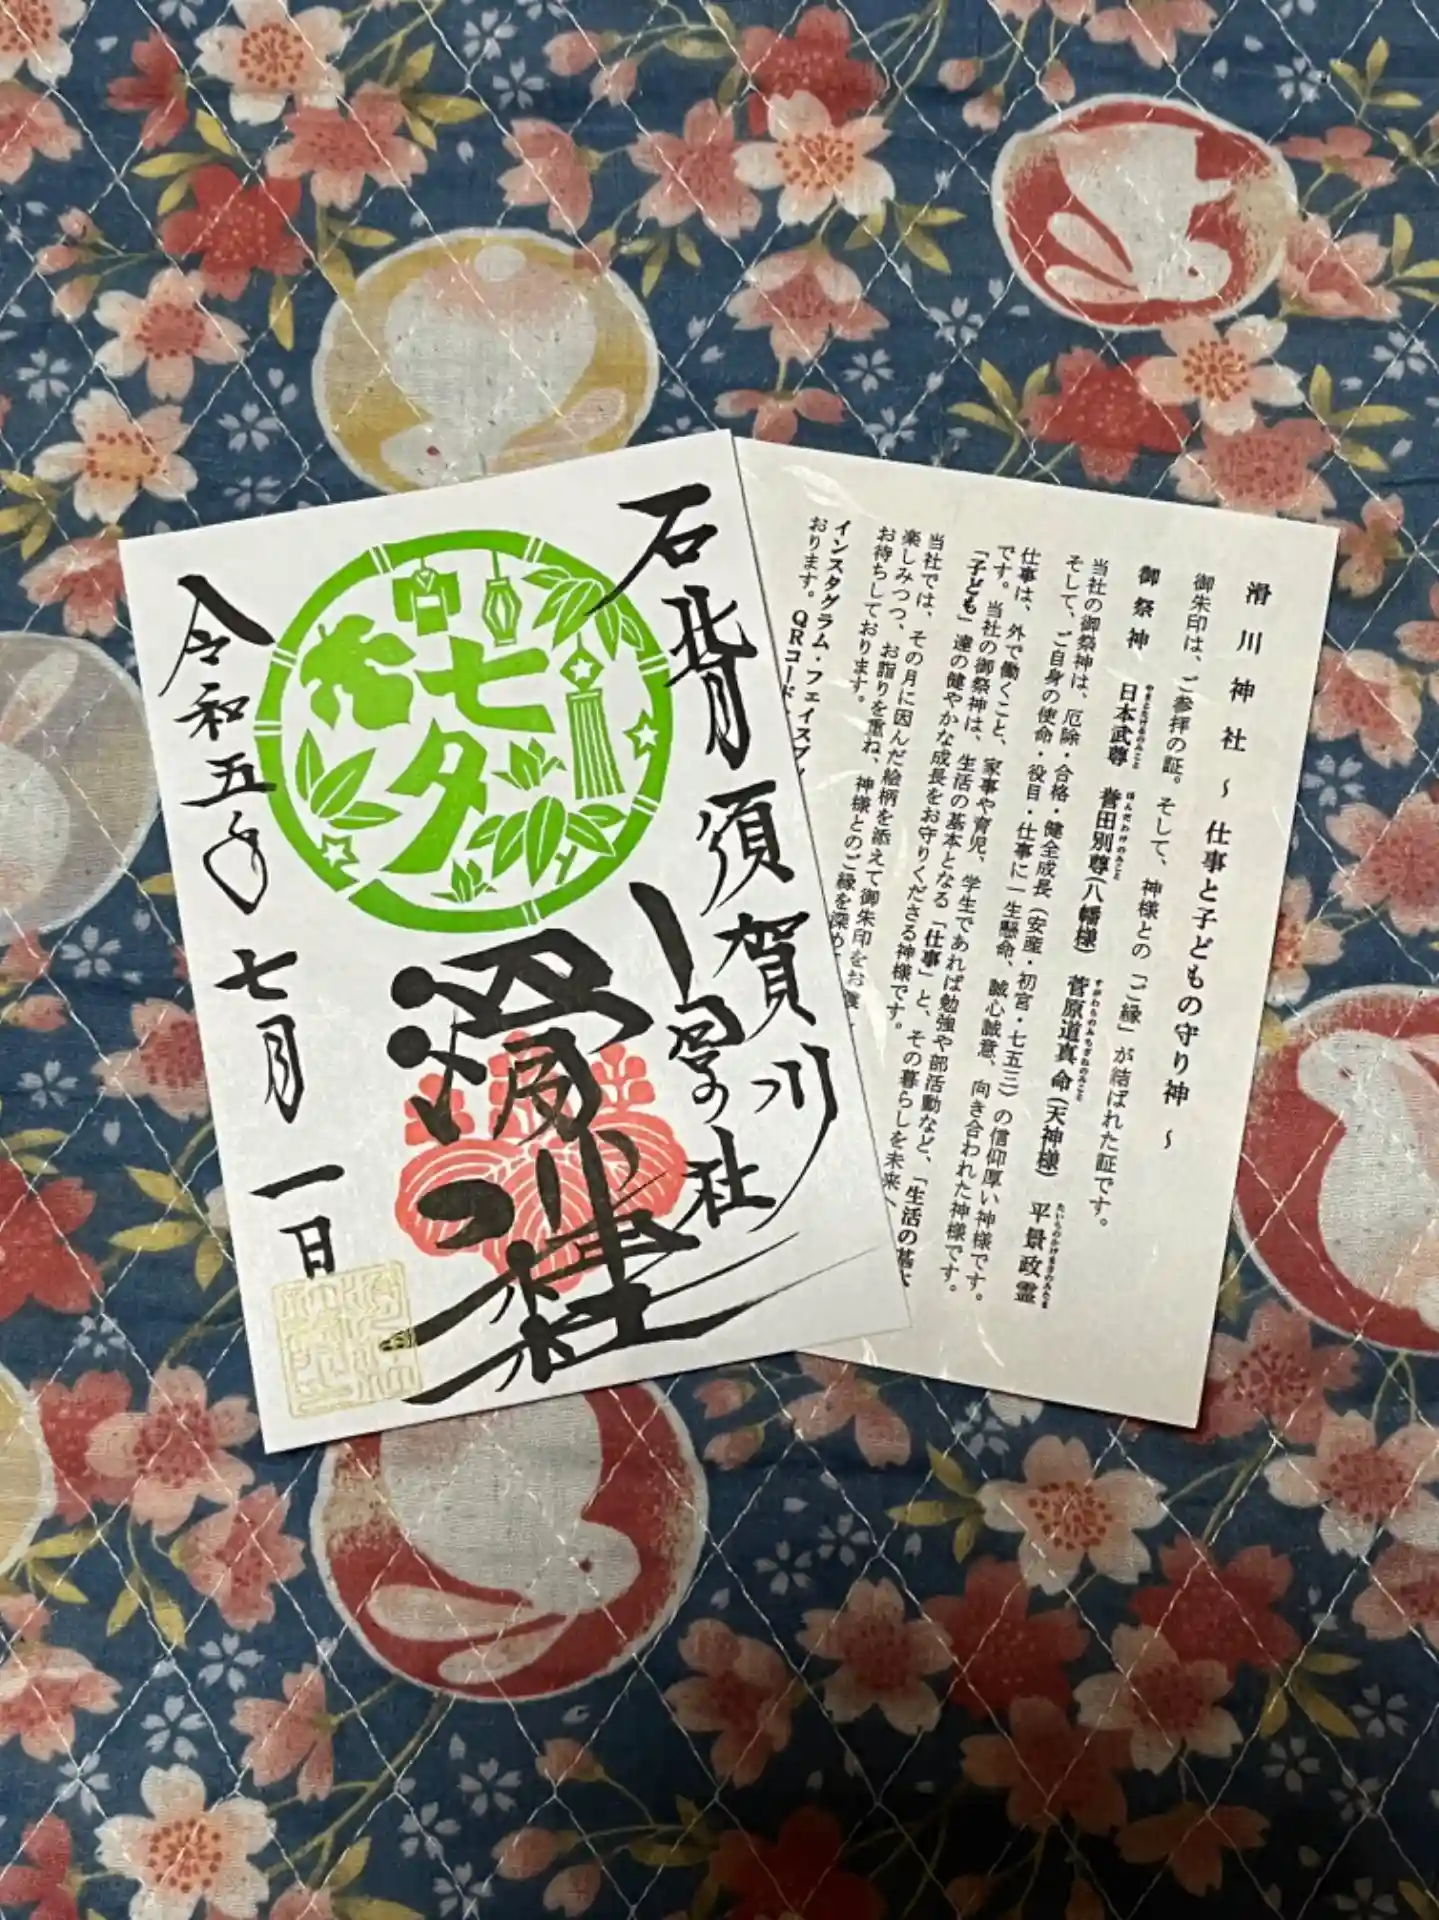 石背
須賀川
一宮の社
七夕
滑川神社
令和五年
七月一日
滑川神社 ～仕事と子どもの守り神～
御朱印は、ご参拝の証。そして、神様との「ご縁」が結ばれた証です。
御祭神 日本武尊 誉田別尊(八幡様) 菅原道真命(天神様) 平景政霊
やまとたけるのみこと ほんだわけのみこと すがわらのみちざねのみこと たいらのかげまさのみたま
当社の御祭神は、厄除・合格・健全成長(安産・初宮・七五三)の信仰厚い神様です。
そして、ご自身の使命・役目・仕事に一生懸命、誠心誠意、向き合われた神様です。
仕事は、外で働くこと、家事や育児、学生であれば勉強や部活動など、「生活の基本
です。当社の御祭神は、生活の基本となる「仕事」と、その暮らしを未来へ
「子ども」達の健やかな成長をお守りくださる神様です。
当社では、その月に因んだ絵柄を添えて御朱印をお
楽しみつつ、お詣りを重ね、神様とのご縁を深め
お待ちしております。
インスタグラム・フェイスブッ
おります。QRコード